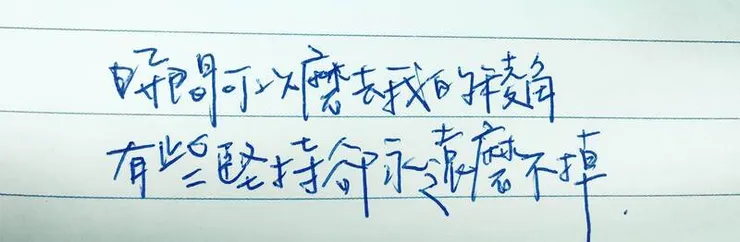 時間可以磨去我的稜角
有些堅持卻永遠磨不掉.